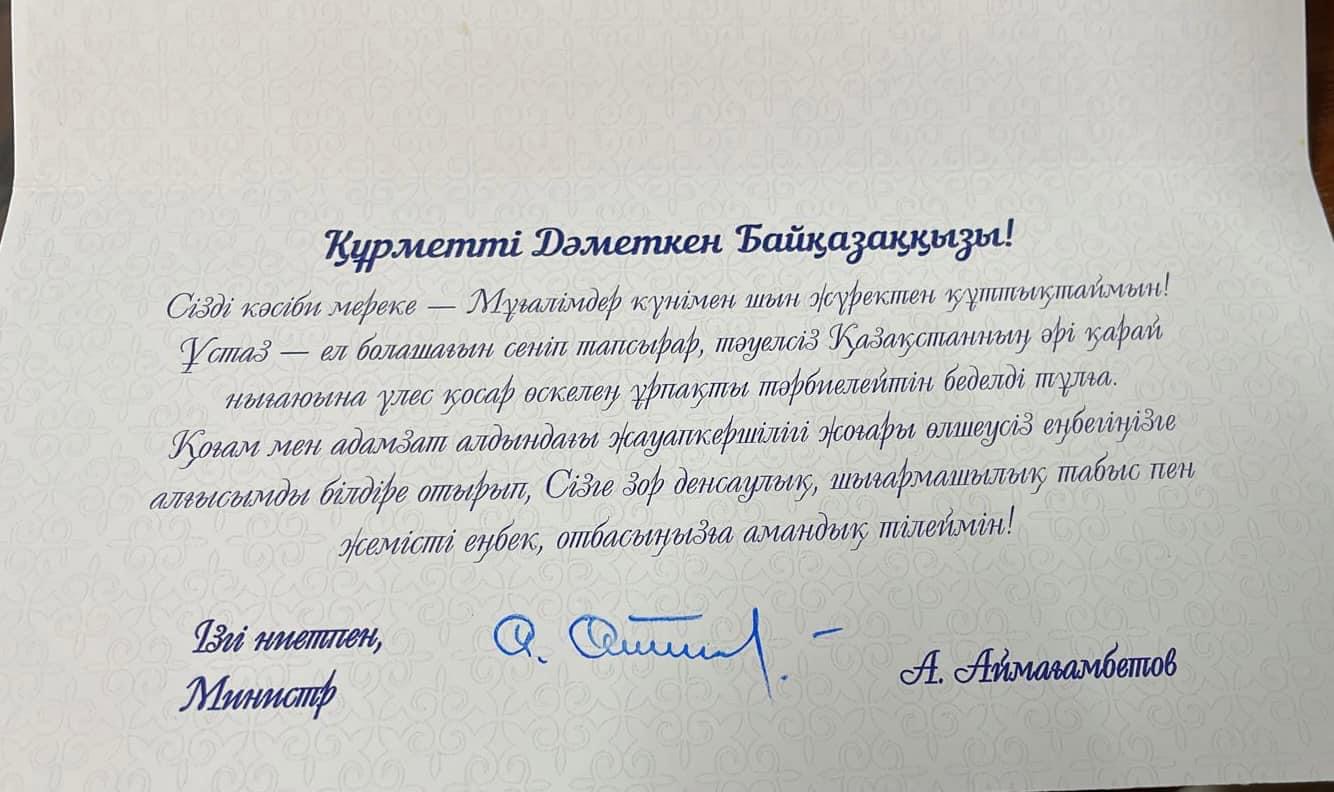 Құрметті Дәметкен Байқазаққызы!
Сізді кәсіби мереке — Мұғалімдер күнімен шын жүректен құттықтаймын!
Ұстаз — ел болашағын сеніп тапсырар, тәуелсіз Қазақстанның әрі қарай
нығаюына үлес қосар өскелең ұрпақты тәрбиелейтін беделді тұлға.
Қоғам мен адамзат алдындағы жауапкершілігі жоғары өлшеусіз еңбегіңізге
алғысымды білдіре отырып, Сізге зор денсаулық, шығармашылық табыс пен
жемісті еңбек, отбасыңызға амандық тілеймін!
Ізгі ниетпен,
Министр
А. Аймағамбетов